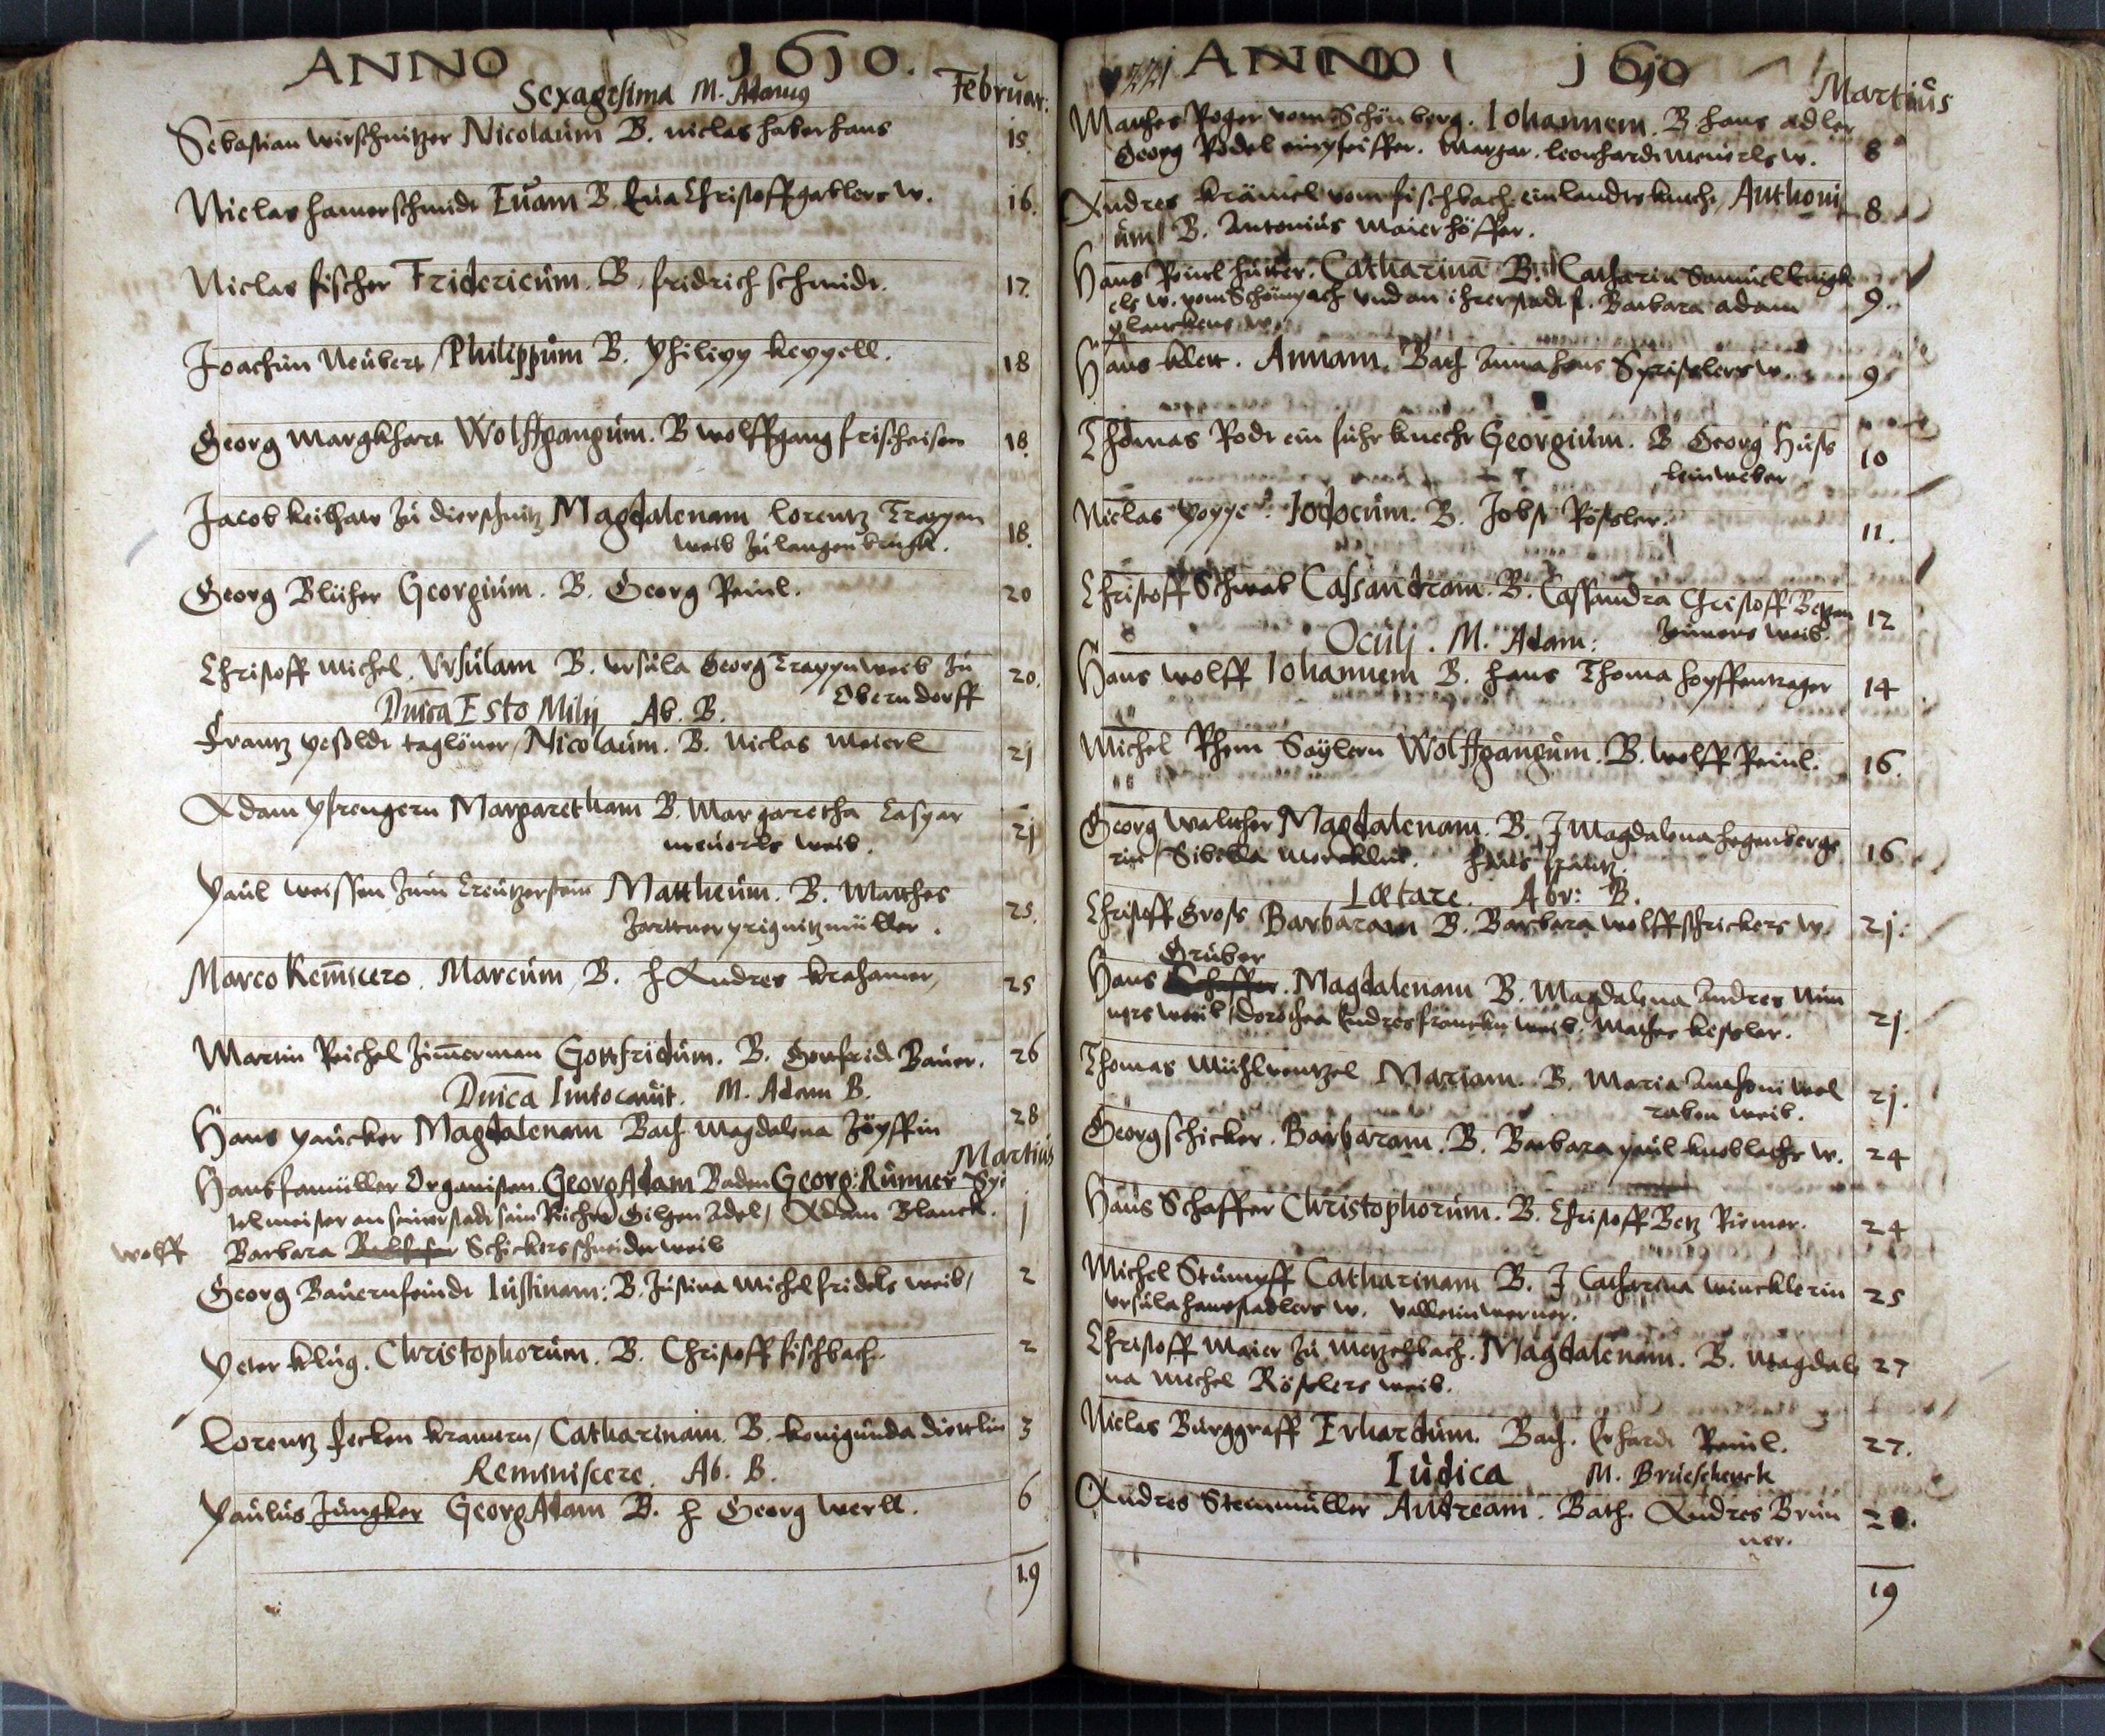 ANNO 1610.
Sexagesima M. Adamus Februar:
Sebastian wirschnitzer Nicolaum B. niclas haberhans 15.
Niclas hamerschmidt Euam B. Eua Christoff gablers w. 16.
Niclas fischer Fridericum. B. fridrich schmidt. 17.
Joachim Neubert, Philippum B. Philipp keppell. 18
Georg Margkhart Wolffgangum. B wolffgang frischeisen 18.
Jacob keilhaw zu dierschnitz Magdalenam Lorentz Trappen 18.
weib zu langenbrugk.
Georg Blüher Georgium. B. Georg Peinl. 20
Christoff Michel. Vrsulam B. vrsula Georg Trappn weib zu 20.
Oberndorff
Dnica Esto Mihi Ab. B.
Frantz pesoldt taglöner, Nicolaum. B. Niclas Meierl 21
Adam pfrengern Margaretham B. Margaretha Caspar 21
meuerls weib.
Paul weissen zum Creutzerstein Mattheum. B. Matthes 25.
zarttner prignitzmüller.
Marco Kemicero. Marcum, B. h Andres krahamer, 25
Martin Reichel zimerman Gottfridum. B. Gottfridt Bauer. 26
Dnica Inuocauit. M. Adam B.
Hans paucker Magdalenam Bath Magdalena zöpffin 28
Martius
Hans famüller Organisten Georg Adam Baden Georg Runner Spi
telmeister an seiner stadt sein Richter Gilgen Adel, Adam Blanck. 1
wolff Barbara Schickers schneider weib
Georg Bauernfeindt Iustinam: B. Justina Michel fridels weib, 2
Peter klug. Christophorum. B. Christoff fischbach. 2
Lorentz fecken kramern, Catharinam. B. konigunda diettlin 3
Reminiscere. Ab. B.
Paulus Jungker Georg Adam B. h Georg werll. 6
19
221 ANNO 1610
Martius
Matthes Roger vom Schönberg. Iohannem. B. hans adler
Georg Rodel Margar. leonhardt meuerls w. 8
Andres krämel vom fischbach ein landtsknecht, Anthoni 8.
um B. Antonius Maierhöffer.
Hans Peinl hutter. Catharinã B. Catharia Samuel
els w. vom vnd an ihrer stadt f. Barbara adam 9.
planckens w.
Hans klett. Annam. Bath Anna hans Sprislers w. 9
Thomas Rodt ein fuhrknecht Georgium. B. Georg Huss 10
leinweber
Niclas Popp. Iodocum. B. Jobst Rössler. 11.
Christoff Schwab Cassandram. B. Cassandra Christoff Betzen 12
weib.
Oculj. M. Adam:
Hans wolff Iohannem B. hans Thoma hopffentrager 14
Michel Rhem Saylern Wolffgangum. B. wolff Peinl. 16.
Georg walther Magdalenam. B. J Magdalena hegenberge 16
rin, Sibilla
Lætare. Abr: B.
Christoff Gross Barbaram B. Barbara wolff strickers w. 21.
Gruber
Hans Schaffer. Magdalenam B. Magdalena Andres Nün
ners weib, dorothea Endres francken weib, Mathes kessler. 21.
Thomas Mühlwentzel Mariam. B. Maria Anthoni wel 21.
raben weib.
Georg schicker. Barbaram. B. Barbara paul knoblochs w. 24
Hans Schaffer Christophorum. B. Christoff Betz Riemer. 24
Michel Stumpff Catharinam B. J Catharina wincklerin 25
vrsula hans stadlers w. vallentin werner.
Christoff Maier zu Metzelbach. Magdalenam. B. Magdale 27
na Michel Rösslers weib.
Niclas Burggraff Erhardum. Bath. Erhardt Peinl. 27.
Iudica M. Brueschenck
Andres Steinmüller Andream. Bath. Andres Brun 28.
ner.
19